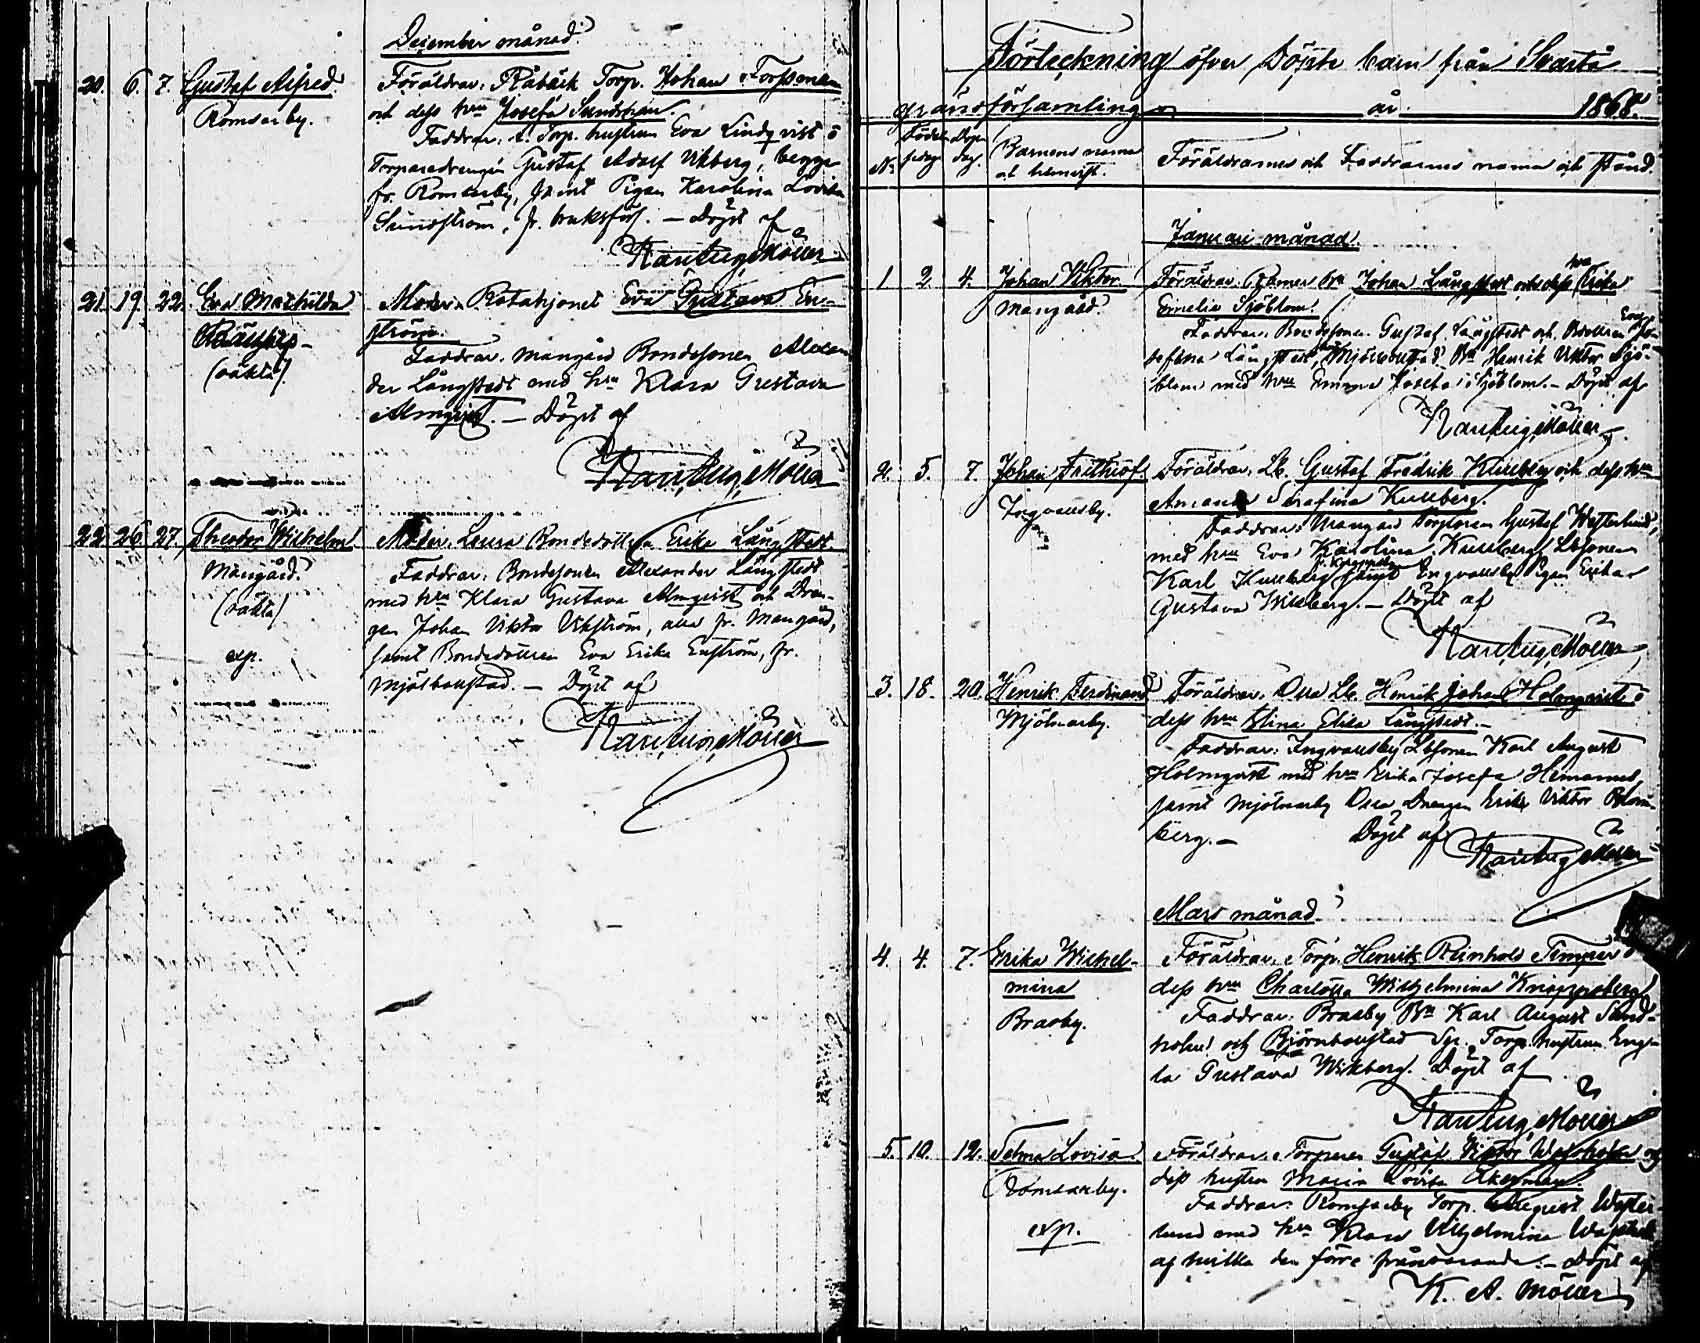 December månad.
20. 6. 7. Gustaf Alfred
Romsarby.
Föräldrar: Råbäck Torp. Johan Forssman
och dess hru Josefa Sundman
Faddrar: Torp. hustrun Eva Lindqvist o
Torparedrengen Gustaf Adolf Vikberg, begge
fr. Romsarby, samt Pigan Karolina Lovisa
Sundström, fr. bruksförs. — Döpt af
Karl Aug. Möller
21. 19. 22. Eva Mathilda
(oäkta)
Moder: Rotehjonet Eva Gustava En-
ström.
Faddrar: Mangård Bondesonen Alexan-
der Långstedt med hru Klara Gustava
Almqvist. — Döpt af
Karl Aug. Möller
22. 26. 27. Theodor Wilhelm
Mangård.
(oäkta)
exp.
Moder: Bondedottern Erika Långstedt.
Faddrar: Bondesonen Alexander Långstedt
med hru Klara Gustava Almqvist och Dren-
gen Johan Viktor Vikström, alla fr. Mangård,
samt Bondedottren Eva Erika Enström, fr.
Mjölbollstad. — Döpt af
Karl Aug. Möller
Förteckning öfver Döpta barn från Svartå
gränsförsamling år 1868.
No Födelsedag Dopdag Barnens namn och hemvist. Föräldrarnes och Faddrarnes namn och stånd.
Januari månad.
1 2. 4. Johan Viktor
Mangård.
Föräldrar: Johan Långstedt och dess hru Erika
Emelia Sjöblom.
Faddrar: Bondesonen Gustaf Långstedt och
sefina Långstedt, Mjölbollstad Bn Henrik Viktor Sjö-
blom med hru Emma Josefa Sjöblom. — Döpt af
Karl Aug. Möller
2. 5. 7. Johan Frithiof.
Ingvallsby.
Föräldrar: Lb. Gustaf Fredrik Kullberg och dess hru
Amanda Serafina Kullberg.
Faddrar: Mangård Torparen Gustaf Westerlund,
med hru Eva Karolina Kullberg, Lbsonen
Karl Kullberg samt Engvallsby Pigan Erika
Gustava Wikberg. — Döpt af
Karl Aug. Möller
3. 18. 20. Henrik Ferdinand
Mjölnarby.
Föräldrar: Lb. Henrik Johan Holmqvist o
dess hru Elina Elisa Långstedt. —
Faddrar: Ingvallsby Lbsonen Karl August
Holmqvist med hru Erika Josefa
samt Mjölnarby Drengen Erik Viktor Blom-
berg. — Döpt af
Karl Aug. Möller
Mars månad.
4. 4. 7. Erika Wilhel-
mina
Brasby.
Föräldrar: Torp. Henrik Reinhold Timper o
dess hru Charlotta Wilhelmina Knipperberg
Faddrar: Brasby Bn Karl August Sund-
holm och Björnbollstad Torp. hustrun Enge-
la Gustava Wikberg. Döpt af
Karl Aug. Möller
5. 10. 12. Selma Lovisa
Romsarby.
exp.
Föräldrar: Torparen Gustaf Viktor och
dess hustru Maria Lovisa Åkerman.
Faddrar: Romsarby Torp. August Wester-
lund med hru Klara Vilhelmina
af hvilka den förre frånvarande. — Döpt af
K. A. Möller